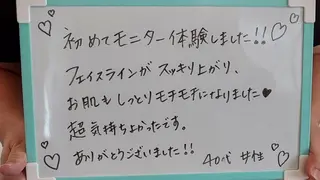 初めてモニター体験しました!!
フェイスラインが スッキリ上がり、
お肌もしっとりモチモチになりました♥
超気持ちよかったです。
ありがとうございました!! 40代 女性